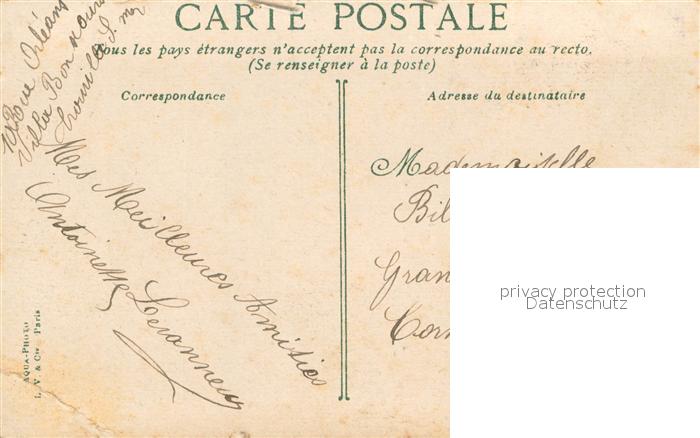 CARTE POSTALE
Tous les pays étrangers n'acceptent pas la correspondance au recto.
(Se renseigner à la poste)
Correspondance
Adresse du destinataire
Rue Orléans
Villa Bon
Mes Meilleures Amitiés
Antoinette
Mademoiselle
Bil
Gran
privacy protection
Datenschutz
AQUA-PHOTO
L. V. & Cie Paris